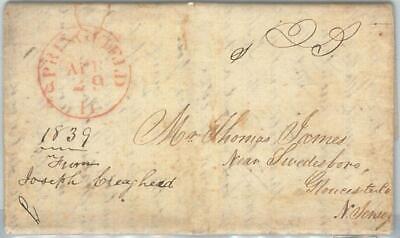 SPRINGFIELD
APR
29
25
1839
From
Joseph Creaghead
Mr. Thomas James
Near Swedesboro,
Gloucester Co
N. Jersey